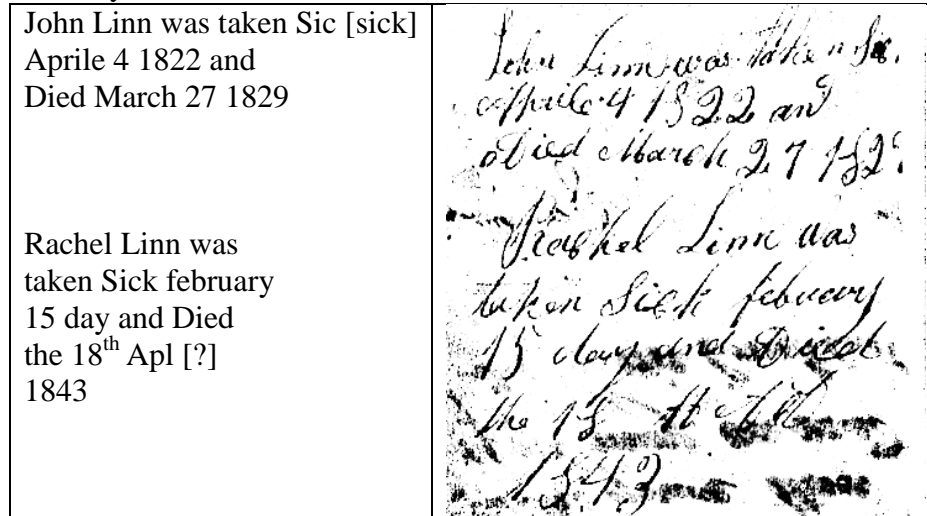 John Linn was taken Sic [sick]
Aprile 4 1822 and
Died March 27 1829
Rachel Linn was
taken Sick february
15 day and Died
the 18th Apl [?]
1843
John Linn was taken Sic
Aprile 4 1822 and
Died March 27 182
Rachel Linn was
taken Sick febuary
15 day and Died
the 18 th
1843